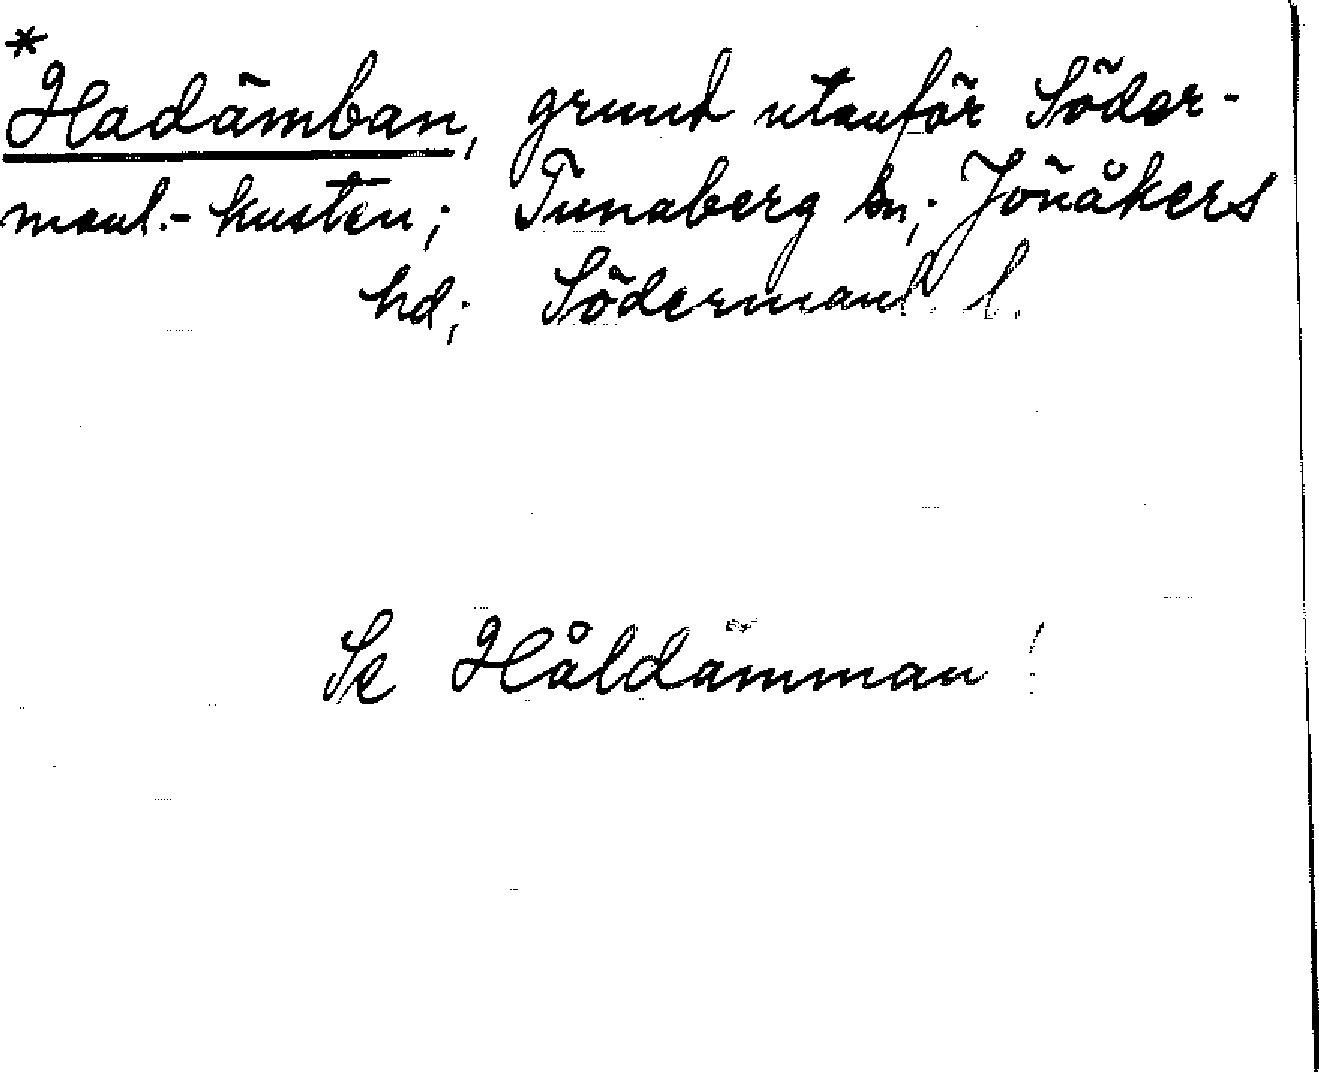 *
Hadämban, grund utanför Söder-
manl.-kusten; Tunaberg sn; Jönåkers
hd; Södermanl. l.
Se Håldämman!